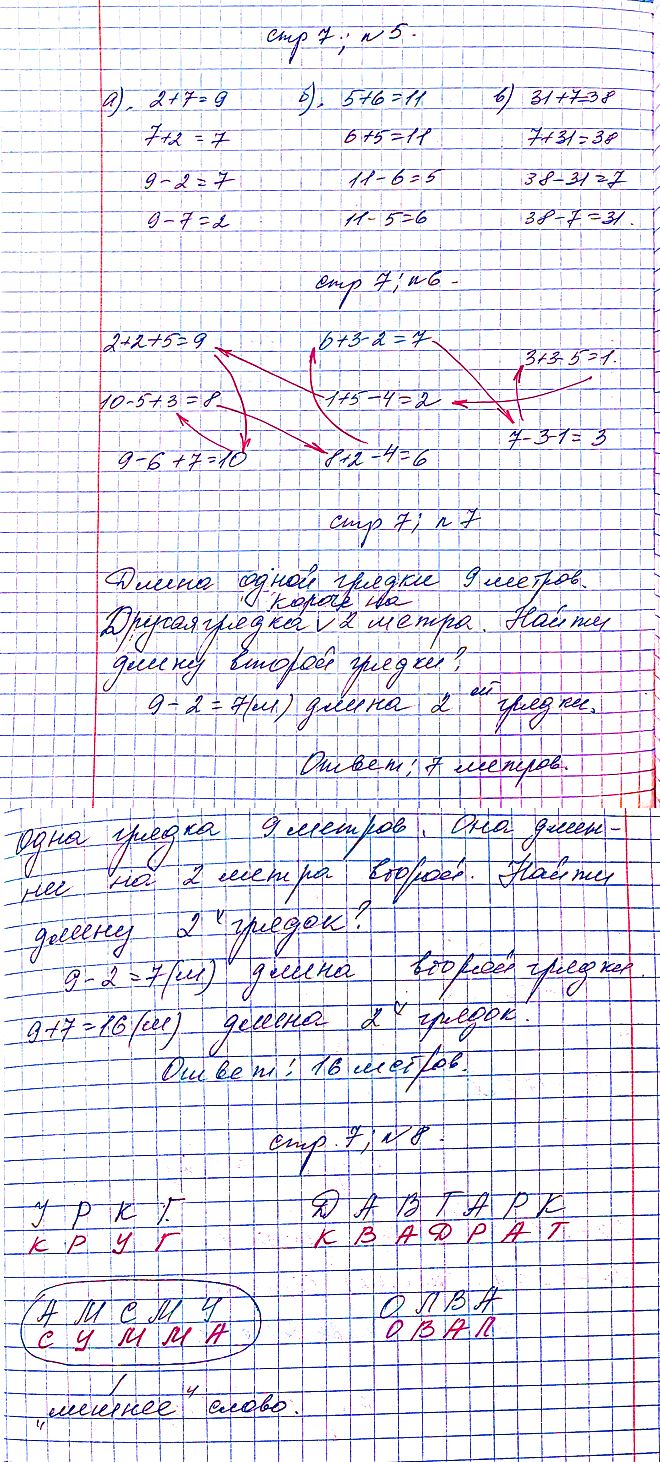 стр 7; n 5.
а). 2+7=9 б). 5+6=11 в) 31+7=38
7+2 = 7 6+5=11 7+31=38
9-2=7 11-6=5 38-31=7
9-7=2 11-5=6 38-7=31.
стр 7; n 6
2+2+5=9 6+3-2=7 3+3-5=1.
10-5+3=8 1+5-4=2
9-6+7=10 8+2-4=6 7-3-1=3
стр 7; n 7
Длина одной грядки 9 метров.
короче на
Другая грядка v 2 метра. Найти
длину второй грядки?
9-2=7(м) длина 2ой грядки.
Ответ: 7 метров.
Одна грядка 9 метров. Она длин-
нее на 2 метра второй. Найти
длину 2х грядок?
9-2=7(м) длина второй грядки.
9+7=16(м) длина 2х грядок.
Ответ: 16 метров.
стр. 7; n 8.
У Р К Г. Д А В Т А Р К
К Р У Г К В А Д Р А Т
А М С М У О Л В А
С У М М А О В А Л
„лишнее" слово.